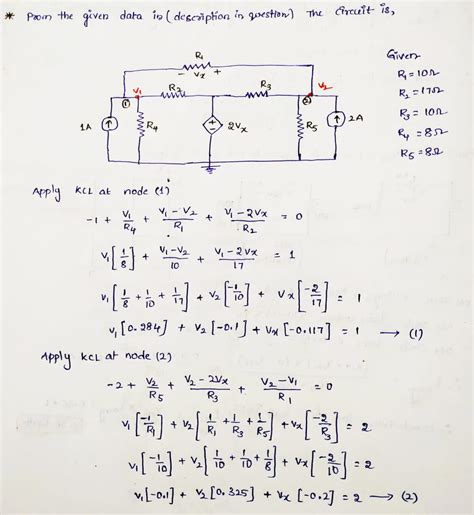 * From the given data in (description in question) The Circuit is,
R₁
- Vx +
V₁ R₂ R₃ V₂
(1) (2)
1A R₄ + - 2Vx R₅ 2A
Given
R₁ = 10Ω
R₂ = 17Ω
R₃ = 10Ω
R₄ = 8Ω
R₅ = 8Ω
Apply KCL at node (1)
-1 + V₁/R₄ + (V₁ - V₂)/R₁ + (V₁ - 2Vx)/R₂ = 0
V₁[1/8] + (V₁-V₂)/10 + (V₁ - 2Vx)/17 = 1
V₁[1/8 + 1/10 + 1/17] + V₂[-1/10] + Vx[-2/17] = 1
V₁[0.284] + V₂[-0.1] + Vx[-0.117] = 1 → (1)
Apply KCL at node (2)
-2 + V₂/R₅ + (V₂ - 2Vx)/R₃ + (V₂ - V₁)/R₁ = 0
V₁[-1/R₁] + V₂[1/R₁ + 1/R₃ + 1/R₅] + Vx[-2/R₃] = 2
V₁[-1/10] + V₂[1/10 + 1/10 + 1/8] + Vx[-2/10] = 2
V₁[-0.1] + V₂[0.325] + Vx[-0.2] = 2 → (2)